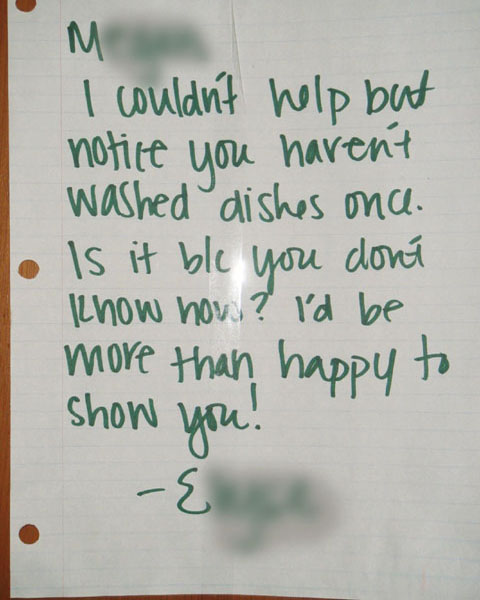 M
I couldn't help but
notice you haven't
washed dishes once.
Is it b/c you don't
know how? I'd be
more than happy to
show you!
-E